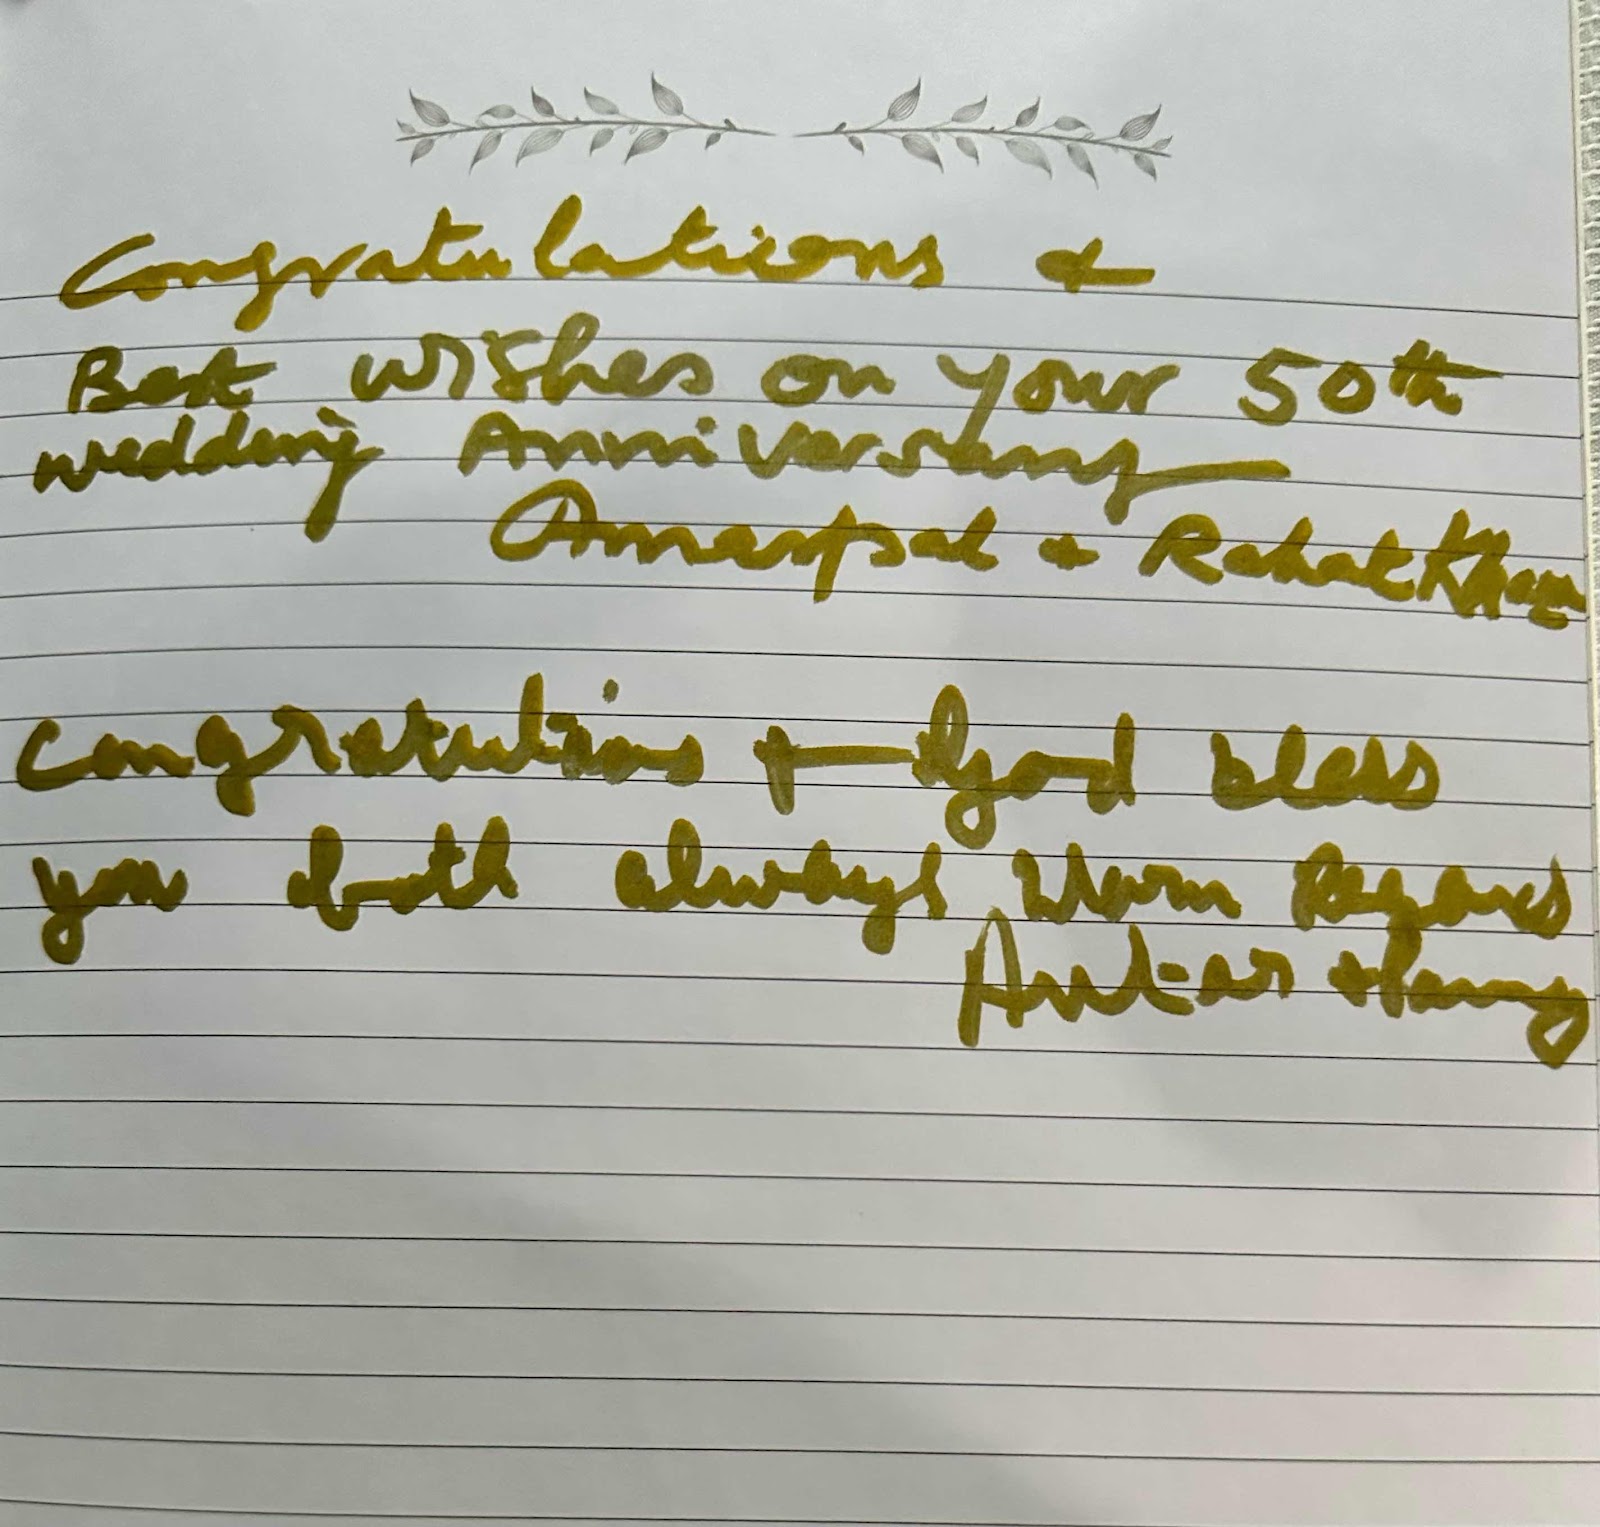 Congratulations &
Best wishes on your 50th
wedding Anniversary
Amarpal & Rahat Khan
Congratulations + God bless
you both always Warm Regards